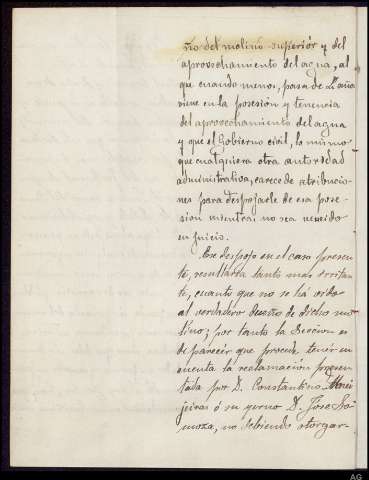 ño del molino superiór y del
aprovechamiento del agua, al
que cuando menos, pasa de un año
viene en la posesión y tenencia
del aprovechamiento del agua
y que el Gobierno civil, lo mismo
que cualquiera otra autoridad
administrativa, carece de atribucio-
nes para despojarle de esa pose-
sión mientras no sea vencido
en juicio.
Ese despojo en el caso presen-
te, resultaria tanto mas irritan-
te, cuanto que no se há oido
al verdadero dueño de dicho mo-
lino; por tanto la Sección es
de parecér que procede tenér en
cuenta la reclamación presen-
tada por D. Constantino
ó su yerno D. José So-
moza, no debiendo otorgar-
AG